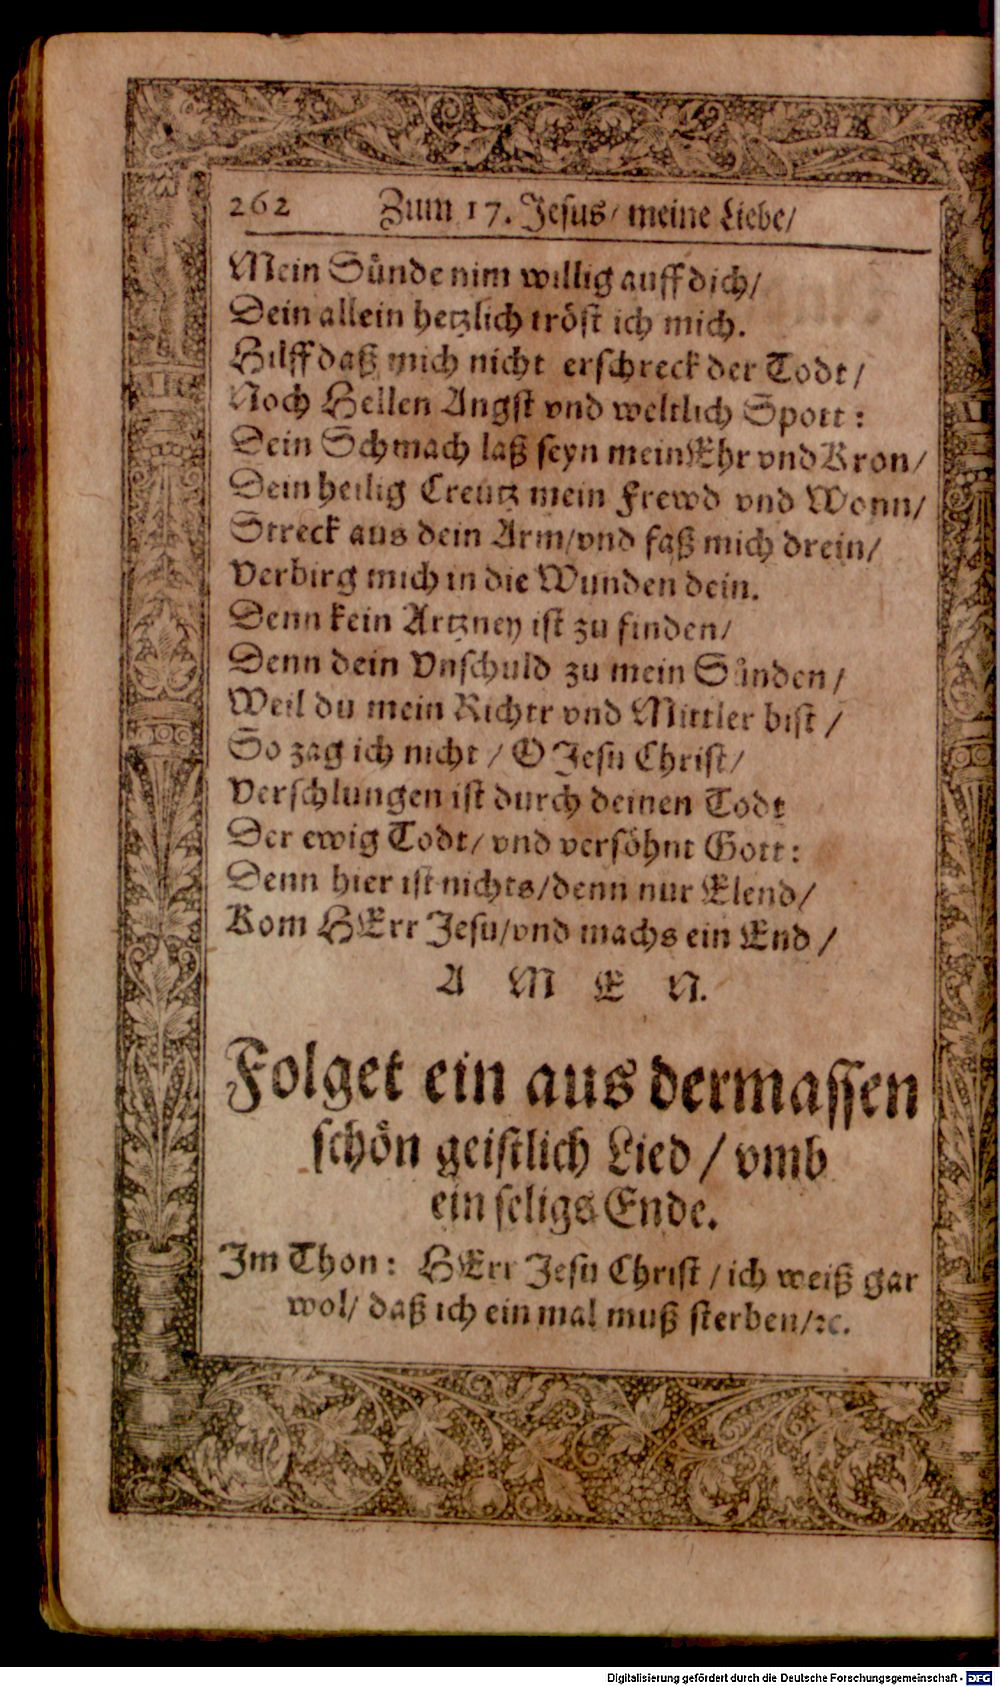 262 Zum 17. Jesus/ meine Liebe/
Mein Sünde nim willig auff dich/
Dein allein hetzlich tröst ich mich.
Hilff daß mich nicht erschreck der Todt/
Noch Hellen Angst vnd weltlich Spott:
Dein Schmach laß seyn mein Ehr vnd Kron/
Dein heilig Creutz mein Frewd vnd Wonn/
Streck aus dein Arm/vnd faß mich drein/
Verbirg mich in die Wunden dein.
Denn kein Artzney ist zu finden/
Denn dein Vnschuld zu mein Sünden/
Weil du mein Richtr vnd Mittler bist/
So zag ich nicht/ O Jesu Christ/
Verschlungen ist durch deinen Todt
Der ewig Todt/ vnd versöhnt Gott:
Denn hier ist nichts/denn nur Elend/
Kom HErr Jesu/vnd machs ein End/
A M E N.
Folget ein aus dermassen
schön geistlich Lied/ vmb
ein seligs Ende.
Im Thon: HErr Jesu Christ/ich weiß gar
wol/ daß ich ein mal muß sterben/ꝛc.
Digitalisierung gefördert durch die Deutsche Forschungsgemeinschaft - DFG